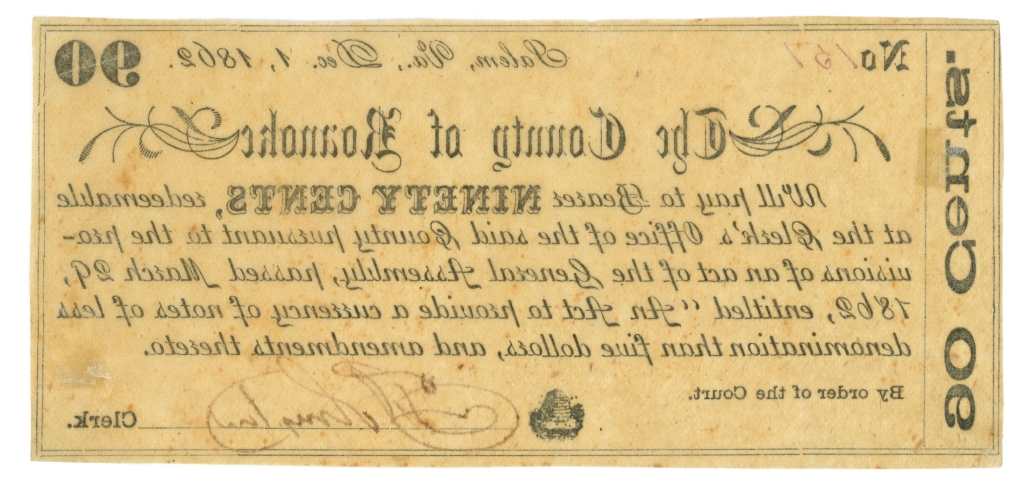 No. 151 Salem, Va., Dec. 1, 1862. 90
The County of Roanoke
Will pay to Bearer NINETY CENTS, redeemable
at the Clerk's Office of the said County pursuant to the pro-
visions of an act of the General Assembly, passed March 29,
1862, entitled "An Act to provide a currency of notes of less
denomination than five dollors, and amendments thereto.
By order of the Court.
Clerk.
90 Cents.